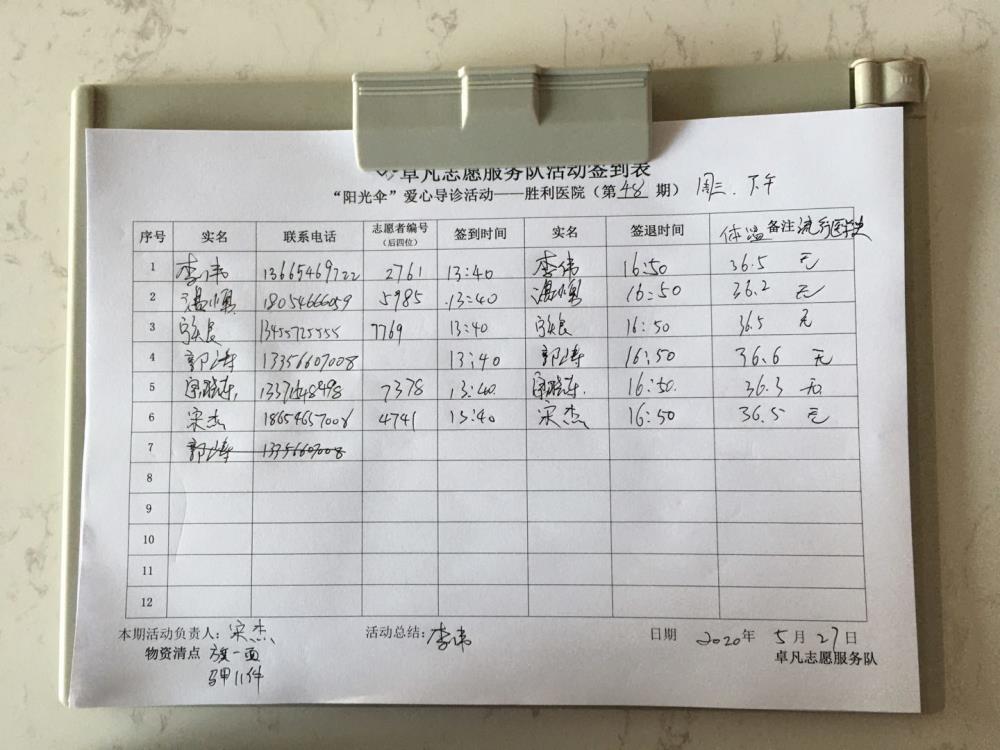 卓凡志愿服务队活动签到表
“阳光伞”爱心导诊活动——胜利医院（第 48 期） 周三.下午
序号 实名 联系电话 志愿者编号（后四位） 签到时间 实名 签退时间 体温 备注 流行病学史
1 李伟 13665469722 2761 13:40 李伟 16:50 36.5 无
2 18054666059 5985 13:40 16:50 36.2 无
3 13455725555 7769 13:40 16:50 36.5 无
4 郭涛 13356607008 13:40 郭涛 16:50 36.6 无
5 7378 13:40 16:50 36.3 无
6 宋杰 18654657008 4741 13:40 宋杰 16:50 36.5 无
7 郭涛 13356607008
8
9
10
11
12
本期活动负责人：宋杰 活动总结：李伟 日期 2020年 5月 27日
物资清点 旗一面 卓凡志愿服务队
马甲11件